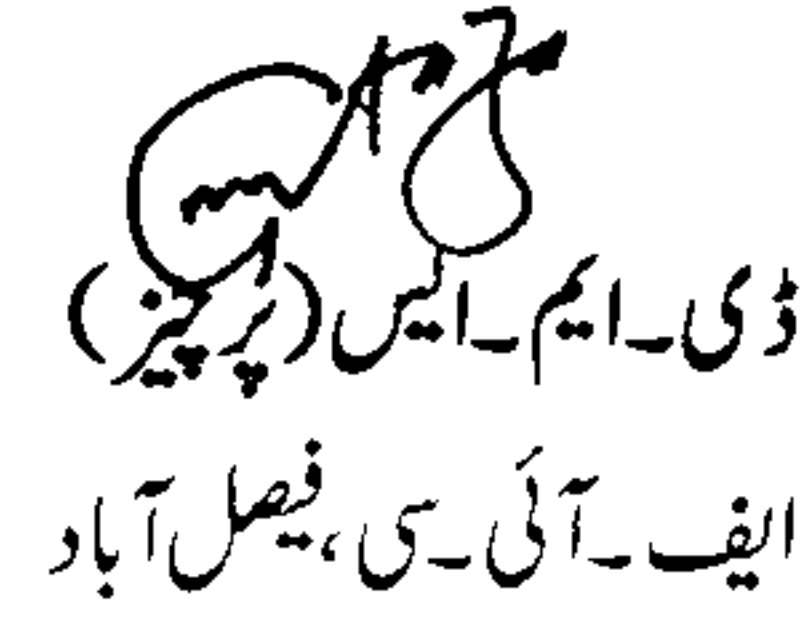 ڈی۔ایم۔ایس (پرچیز)
ایف۔آئی۔سی، فیصل آباد